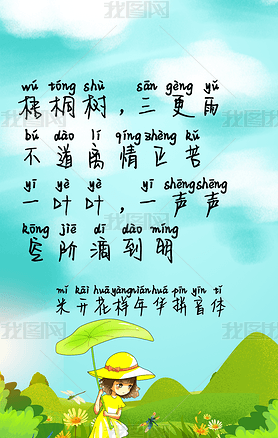 wú tóng shù sān gèng yǔ
梧桐树，三更雨
bú dào lí qíng zhèng kǔ
不道离情正苦
yī yè yè yī shēng shēng
一叶叶，一声声
kōng jiē dī dào míng
空阶滴到明
mǐ kāi huā yàng nián huá pīn yīn tǐ
米开花样年华拼音体